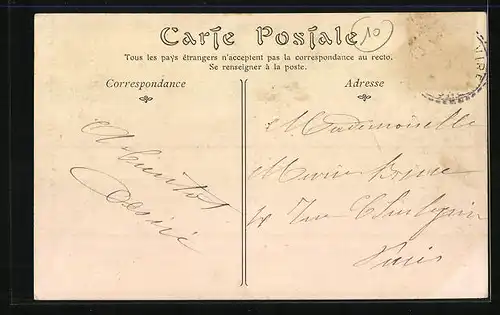 Carte Postale
10
Tous les pays étrangers n'acceptent pas la correspondance au recto.
Se renseigner à la poste.
Correspondance
Adresse
VIRE
A bientôt
Désiré
Mademoiselle
Marie
Rue